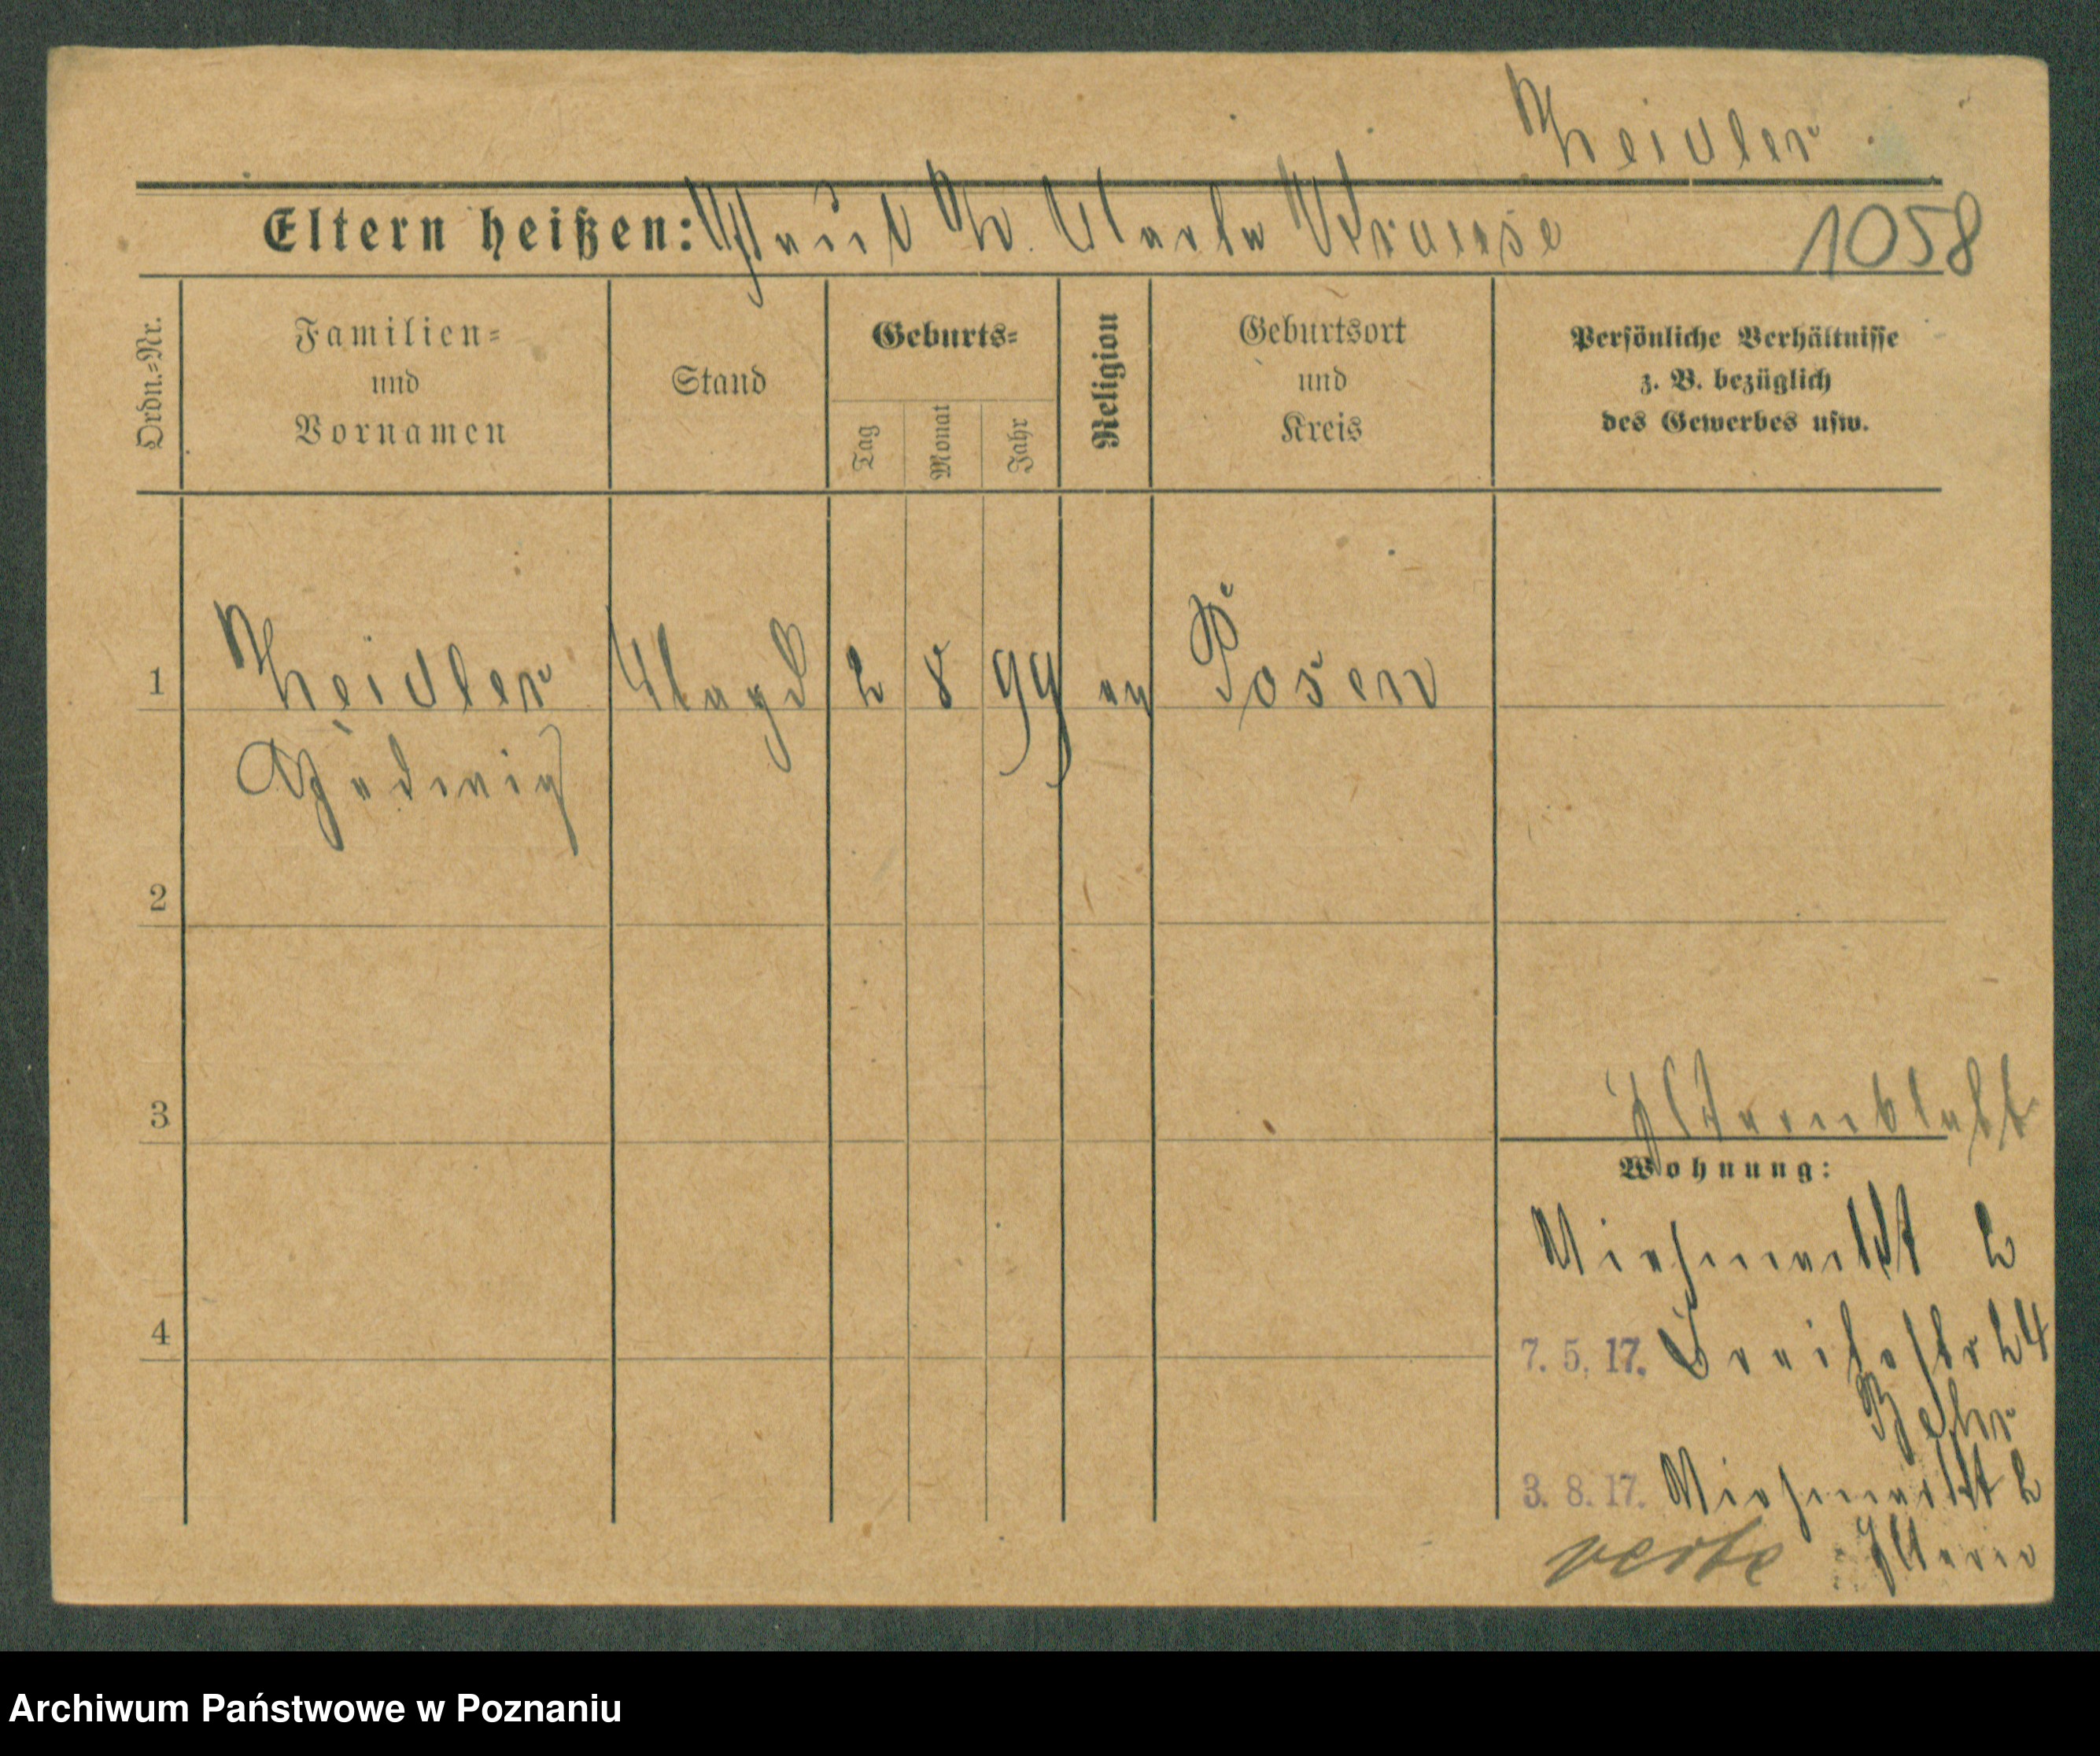 Zeidler
Eltern heißen: Paul Z. Marta Krause 1058
Ordn.-Nr.
Familien-
und
Vornamen
Stand
Geburts-
Tag
Monat
Jahr
Religion
Geburtsort
und
Kreis
Persönliche Verhältnisse
z. B. bezüglich
des Gewerbes usw.
1 Zeidler Magd 2 8 99 ev Posen
Hedwig
2
3
Elternblatt
Wohnung:
Viehmarkt 2
4
7. 5. 17. Breitestr 24
Behr
3. 8. 17. Viehmarkt 2
Eltern
Archiwum Państwowe w Poznaniu